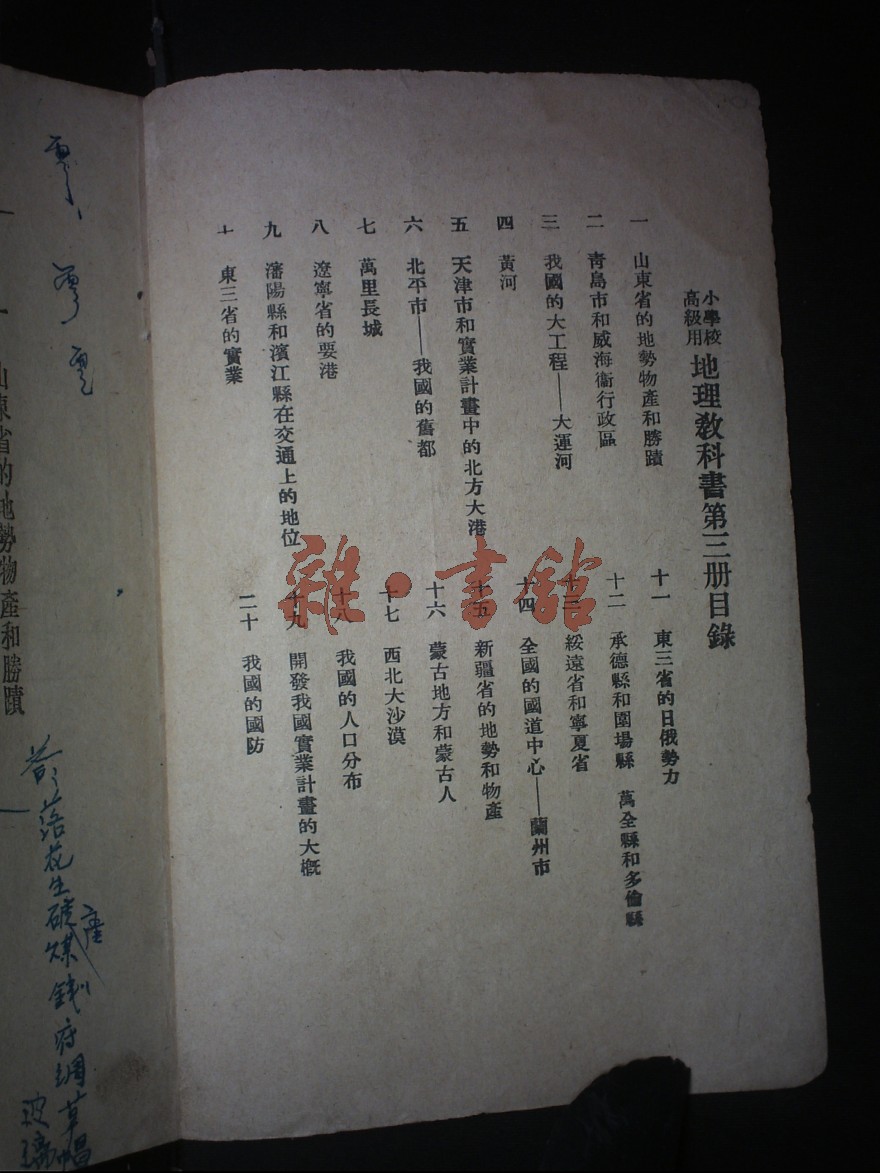 小學校
高級用
地理教科書第三册目錄
一 山東省的地勢物產和勝蹟
二 青島市和威海衞行政區
三 我國的大工程——大運河
四 黃河
五 天津市和實業計畫中的北方大港
六 北平市——我國的舊都
七 萬里長城
八 遼寧省的要港
九 瀋陽縣和濱江縣在交通上的地位
十 東三省的實業
十一 東三省的日俄勢力
十二 承德縣和圍場縣 萬全縣和多倫縣
十三 綏遠省和寧夏省
十四 全國的國道中心——蘭州市
十五 新疆省的地勢和物產
十六 蒙古地方和蒙古人
十七 西北大沙漠
十八 我國的人口分布
十九 開發我國實業計畫的大概
二十 我國的國防
雜·書館
一 山東省的地勢物產和勝蹟
落花生
產
煤
草帽
玻璃